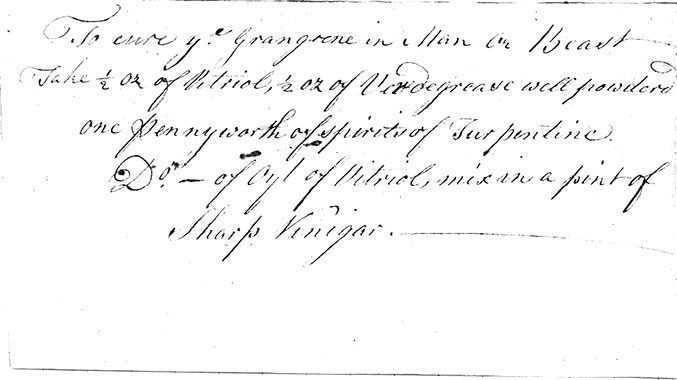 To cure yᵉ Grangrene in Man Or Beast
Take ½ oz of Vitriol, ½ oz of Verdegrease well powderd
one Pennyworth of spirits of Turpentine.
Dᵒ. — of Oyl of Vitriol, mix in a pint of
Sharp Vinigar.